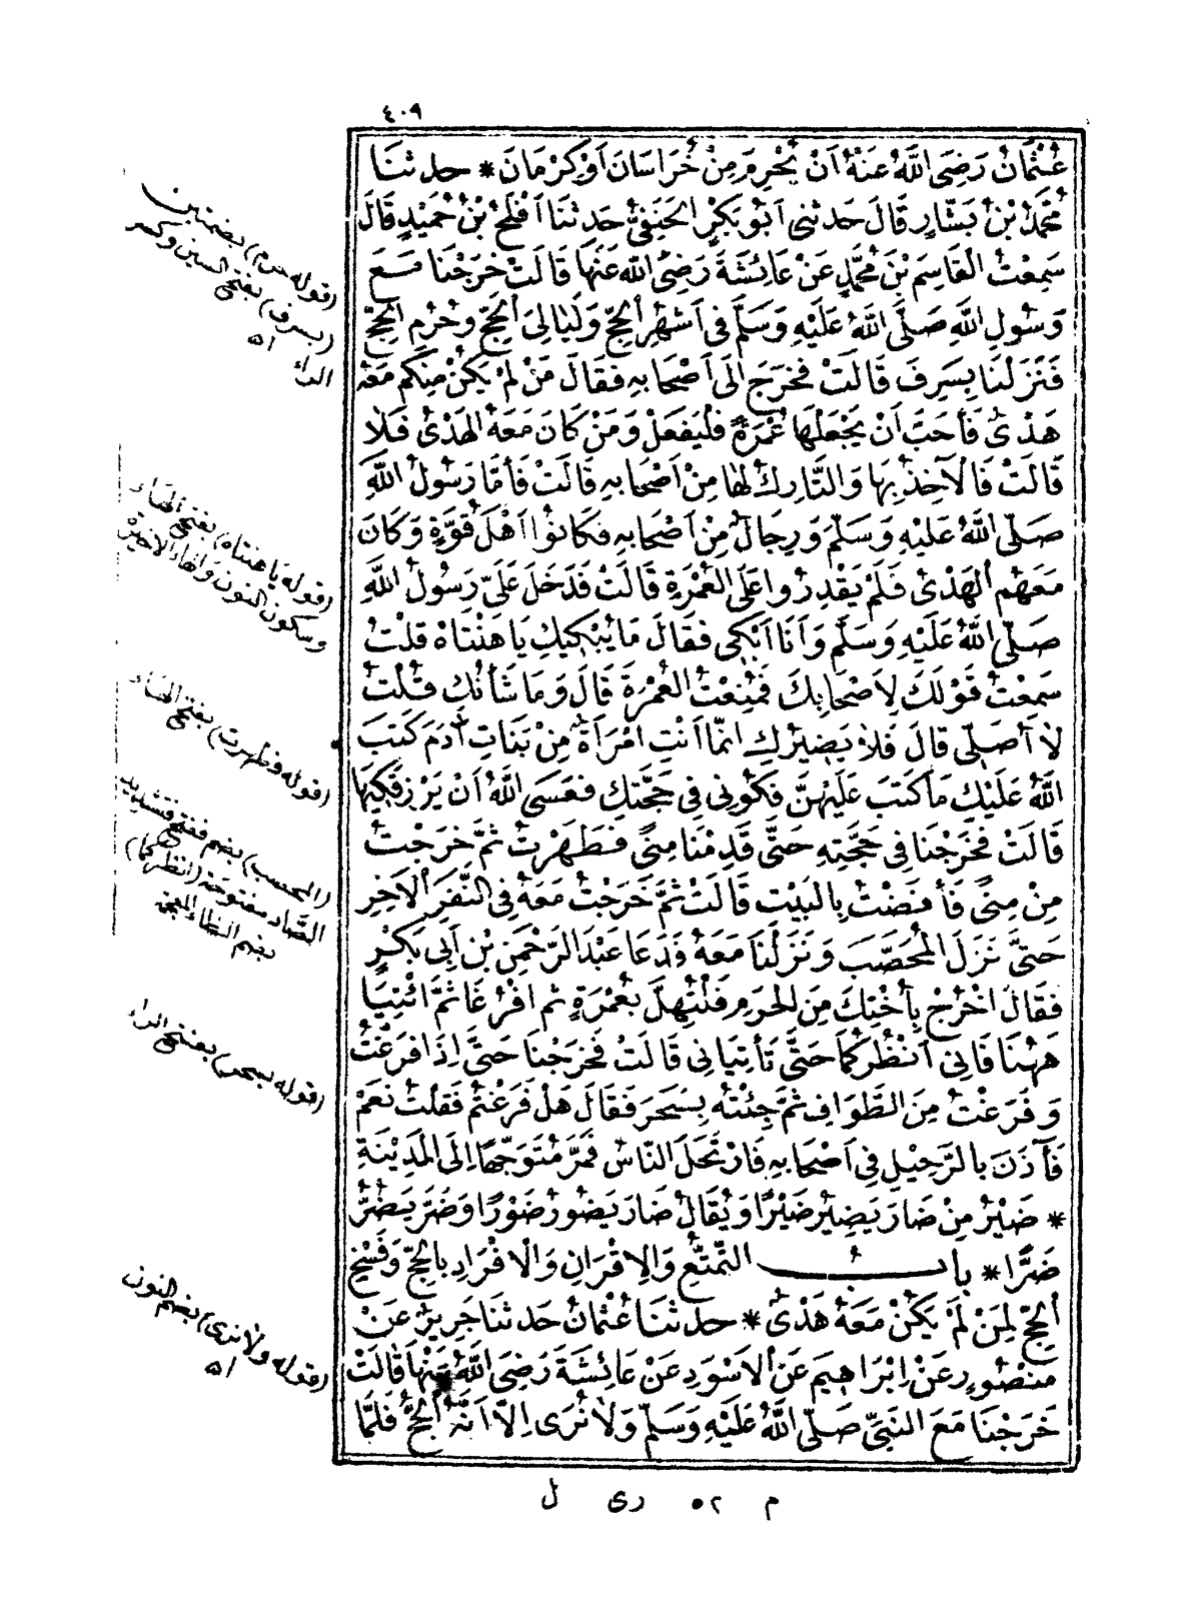 ٤٠٩
عُثْمَانُ رَضِىَ اللهُ عَنْهُ أَنْ يُحْرِمَ مِنْ خُرَاسَانَ أَوْ كِرْمَانَ * حدثنا
مُحَمَّدُ بْنُ بَشَّارٍ قَالَ حَدثنى أَبُو بَكْرٍ الحَنَفِىُّ حَدثنا أَفْلَحُ بْنُ حُمَيْدٍ قَالَ
سَمِعْتُ الْقَاسِمَ بْنَ مُحَمَّدٍ عَنْ عَائِشَةَ رَضِىَ اللهُ عَنْهَا قَالَتْ خَرَجْنَا مَعَ
رَسُولِ اللهِ صَلَّى اللهُ عَلَيْهِ وَسَلَّمَ فى أَشْهُرِ الحَجِّ وَلَيَالِى الحَجِّ وَحُرُمِ الحَجِّ
فَنَزَلْنَا بِسَرِفَ قَالَتْ فَخَرَجَ إِلَى أَصْحَابِهِ فَقَالَ مَنْ لَمْ يَكُنْ مِنْكُمْ مَعَهُ
هَدْىٌ فَأَحَبَّ أَنْ يَجْعَلَهَا عُمْرَةً فَلْيَفْعَلْ وَمَنْ كَانَ مَعَهُ الهَدْىُ فَلَا
قَالَتْ فَالْآخِذُ بِهَا وَالتَّارِكُ لَهَا مِنْ أَصْحَابِهِ قَالَتْ فَأَمَّا رَسُولُ اللهِ
صَلَّى اللهُ عَلَيْهِ وَسَلَّمَ وَرِجَالٌ مِنْ أَصْحَابِهِ فَكَانُوا أَهْلَ قُوَّةٍ وَكَانَ
مَعَهُم الهَدْىُ فَلَمْ يَقْدِرُوا عَلَى العُمْرَةِ قَالَتْ فَدَخَلَ عَلَىَّ رَسُولُ اللهِ
صَلَّى اللهُ عَلَيْهِ وَسَلَّمَ وَأَنَا أَبْكِى فَقَالَ مَا يُبْكِيكِ يَا هَنْتَاهْ قُلْتُ
سَمِعْتُ قَوْلَكَ لِأَصْحَابِكَ فَمُنِعْتُ العُمْرَةَ قَالَ وَمَا شَأْنُكِ قُلْتُ
لَا أُصَلِّى قَالَ فَلَا يَضِيرُكِ انَّمَا أَنْتِ امْرَأَةٌ مِنْ بَنَاتِ آدَمَ كَتَبَ
اللهُ عَلَيْكِ مَا كَتَبَ عَلَيْهِنَّ فَكُونِى فِى حَجَّتِكِ فَعَسَى اللهُ أَنْ يَرْزُقَكِيهَا
قَالَتْ فَخَرَجْنَا فِى حَجَّتِهِ حَتَّى قَدِمْنَا مِنًى فَطَهَرْتُ ثُمَّ خَرَجْتُ
مِنْ مِنًى فَأَفَضْتُ بِالْبَيْتِ قَالَتْ ثُمَّ خَرَجْتُ مَعَهُ فِى النَّفَرِ الْآخِرِ
حَتَّى نَزَلَ الْمُحَصَّبَ وَنَزَلْنَا مَعَهُ فَدَعَا عَبْدَ الرَّحْمَنِ بْن أَبِى بَكْرٍ
فَقَالَ اخْرُجْ بِأُخْتِكَ مِنَ الحَرَمِ فَلْتُهِلَّ بِعُمْرَةٍ ثم افْرُغَا ثُمَّ ائْتِيَا
هَهُنَا فَإِنِى أَنْظُرُكُمَا حَتَّى تَأْتِيَانِى قَالَتْ فَخَرَجْنَا حَتَّى إِذَا فَرَغْتُ
وَفَرَغْتُ مِنَ الطَّوَافِ ثُمَّ جِئْتُهُ بِسَحَرَ فَقَالَ هَلْ فَرَغْتُمْ فَقُلْتُ نَعَمْ
فَآذَنَ بِالرَّحِيْلِ فِى أَصْحَابِهِ فَارْتَحَلَ النَّاسُ فَمَرَّ مُتَوَجِّهًا إِلَى المَدِيْنَةِ
* ضَيْرُ مِنْ ضَارَ يَضِيْرُ ضَيْرًا وَيُقَالُ ضَارَ يَضُورُ ضَوْرًا وَضَرَّ يَضُرُّ
ضَرًّا * بابُ التَّمَتُّعِ وَالإِقْرَانِ وَالْافْرَادِ بالحَجِّ وَفَسْخِ
الحَجِّ لِمَنْ لَمْ يَكُنْ مَعَهُ هَدْىٌ * حدثنا عُثْمَانُ حَدثنا جَرِيرٌ عَنْ
مَنْصُورٍ عَنْ إِبْرَاهِيمَ عَنْ الأَسْوَدِ عَنْ عَائِشَةَ رَضِىَ اللهُ عَنْهَا قَالَتْ
خَرَجْنَا مَعَ النَّبِىِّ صَلَّى اللهُ عَلَيْهِ وَسَلَّمَ وَلَا نُرَى إِلَّا أَنَّهُ الحَجُّ فَلَمَّا
(قوله حرم) بضمتين
(بسرف) بفتح السين وكسر
الراء اه
(قوله يا هنتاه) بفتح الهاء
وسكون النون والهاء الاخيرة
(قوله فطهرت) بفتح الهاء
(المحصب) بضم ففتح فتشديد
الصاد مفتوحة (انظركما)
بضم الظاء المعجمة
(قوله بسحر) بفتح الراء
(قوله ولا نرى) بضم النون
اه
م ٥٢ رى ل